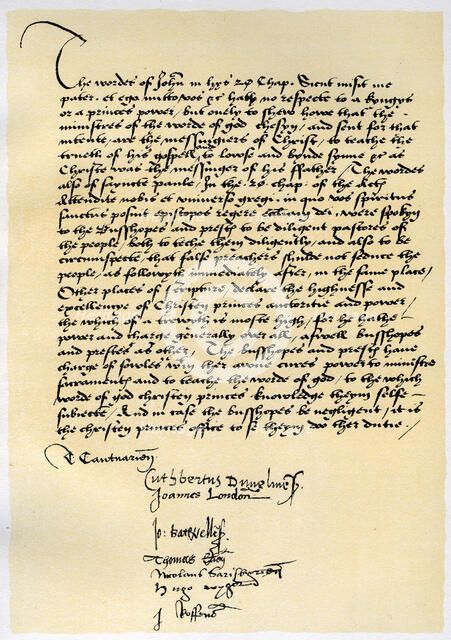 The wordes of John in hys 20 Chap. Sicut misit me
pater. et ego mitto vos &c hath no respecte to a kyngys
or a princes power, but onely to shewe howe that the
ministres of the worde of god chosyn, and sent for that
intente, are the messungiers of Christ, to teache the
trueth of his gospell, to lowse and bynde synne &c as
Christe was the messinger of his ffather, The wordes
also of saynte paule, In the 20 chap. of the Acts
Attendite vobis et universo gregi. in quo vos spiritus
sanctus posuit episcopos regere ecclesiam dei, were spokyn
to the Busshopes and prests to be diligent pastores of
the people, both to teche them diligently, and also to be
circumspecte, that false preachers shulde not seduce the
people, as followyth immediately after, in the same place,
Other places of scripture, declare the highnesse and
excellencye of Christen princes auctoritie and power,
the which of a trewth is moste high, for he hathe
power and charge generally over all, aswell busshopes
and prestes as other, The busshopes and prests have
charge of sowles w'in ther awne cures, power to ministre
sacraments and to teache the worde of god, to the which
worde of god christen princes knowledge them self
subiecte, And in case the busshopes be negligent, it is
the christen princes office to se them doo ther dutie.
T. Cantuarien
Cuthbertus Dunelmens
Joannes London
Jo: batwellēs
Thomas Elien
Nicolaus Sarisburien
Hugo wygorn
J Roffens